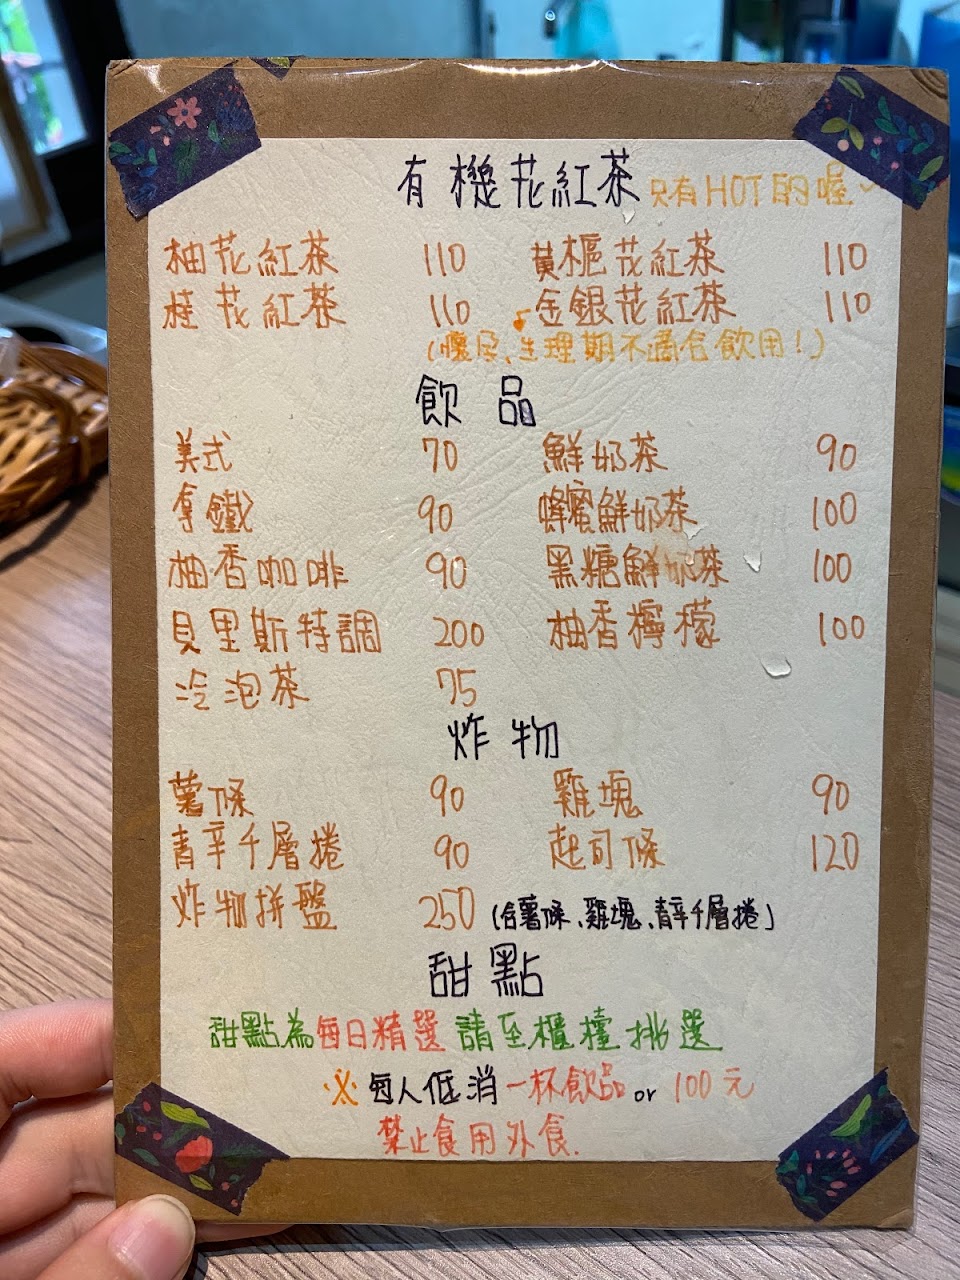 有機花紅茶 只有HOT的喔~
柚花紅茶 110 黃梔花紅茶 110
桂花紅茶 110 金銀花紅茶 110
(懷孕、生理期不適合飲用!)
飲品
美式 70 鮮奶茶 90
拿鐵 90 蜂蜜鮮奶茶 100
柚香咖啡 90 黑糖鮮奶茶 100
貝里斯特調 200 柚香檸檬 100
冷泡茶 75
炸物
薯條 90 雞塊 90
青辛千層捲 90 起司條 120
炸物拼盤 250 (含薯條、雞塊、青辛千層捲)
甜點
甜點為每日精選 請至櫃檯挑選
※每人低消一杯飲品 or 100元
禁止食用外食.